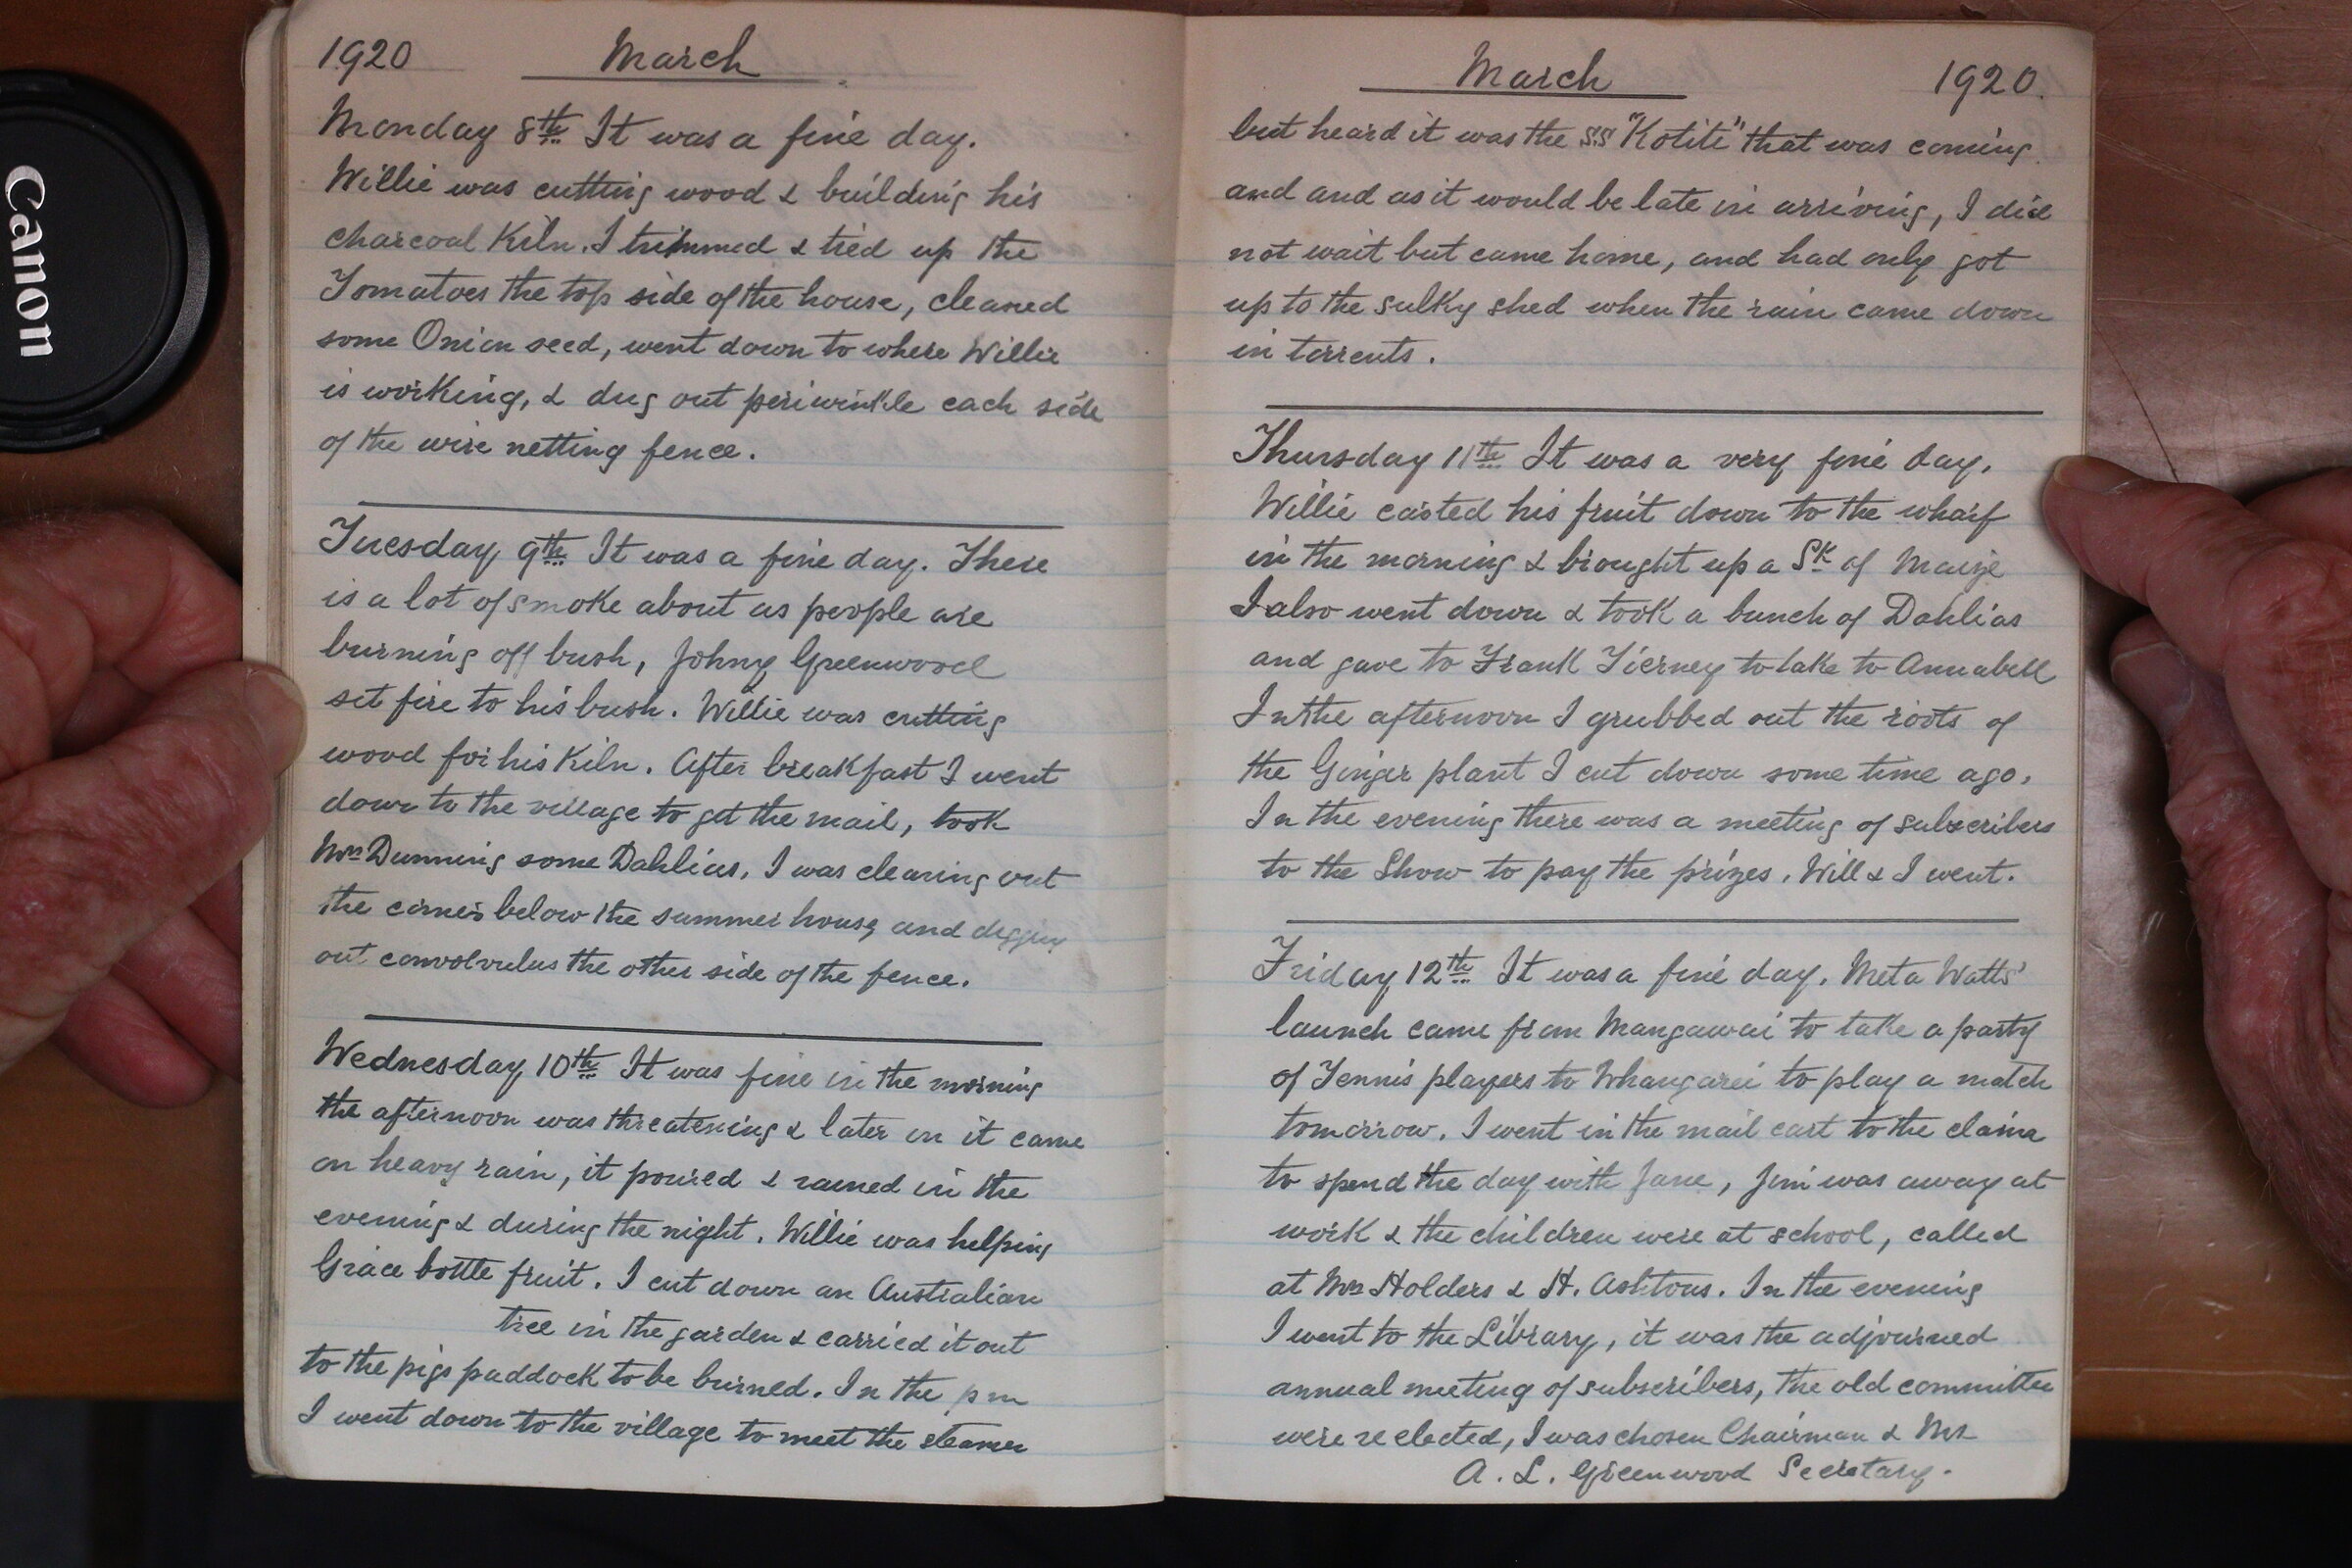 Canon
1920 March
Monday 8th It was a fine day.
Willie was cutting wood & building his
charcoal Kiln. I trimmed & tied up the
Tomatoes the top side of the house, cleaned
some Onion seed, went down to where Willie
is working, & dug out periwinkle each side
of the wire netting fence.
Tuesday 9th It was a fine day. There
is a lot of smoke about as people are
burning off bush, Johny Greenwood
set fire to his bush. Willie was cutting
wood for his Kiln. After breakfast I went
down to the village to get the mail, took
Mrs Dunning some Dahlias. I was clearing out
the corner below the summer house, and digging
out convolvulus the other side of the fence.
Wednesday 10th It was fine in the morning
the afternoon was threatening & later on it came
on heavy rain, it poured & rained in the
evening & during the night. Willie was helping
Grace bottle fruit. I cut down an Australian
tree in the garden & carried it out
to the pigs paddock to be burned. In the pm
I went down to the village to meet the steamer
March 1920.
but heard it was the S.S "Kotiti" that was coming
and and as it would be late in arriving, I did
not wait but came home, and had only got
up to the sulky shed when the rain came down
in torrents.
Thursday 11th It was a very fine day.
Willie carted his fruit down to the wharf
in the morning & brought up a Sk of Maize
I also went down & took a bunch of Dahlias
and gave to Frank Tierney to take to Annabell
In the afternoon I grubbed out the roots of
the Ginger plant I cut down some time ago.
In the evening there was a meeting of subscribers
to the Show to pay the prizes. Will & I went.
Friday 12th It was a fine day. Meta Watts'
launch came from Mangawai to take a party
of Tennis players to Whangarei to play a match
tomorrow. I went in the mail cart to the claim
to spend the day with Jane, Jim was away at
work & the children were at school, called
at Mrs Holders & H. Ashtons. In the evening
I went to the Library, it was the adjourned
annual meeting of subscribers, the old committee
were re elected, I was chosen Chairman & Mr
A. L. Greenwood Secretary.